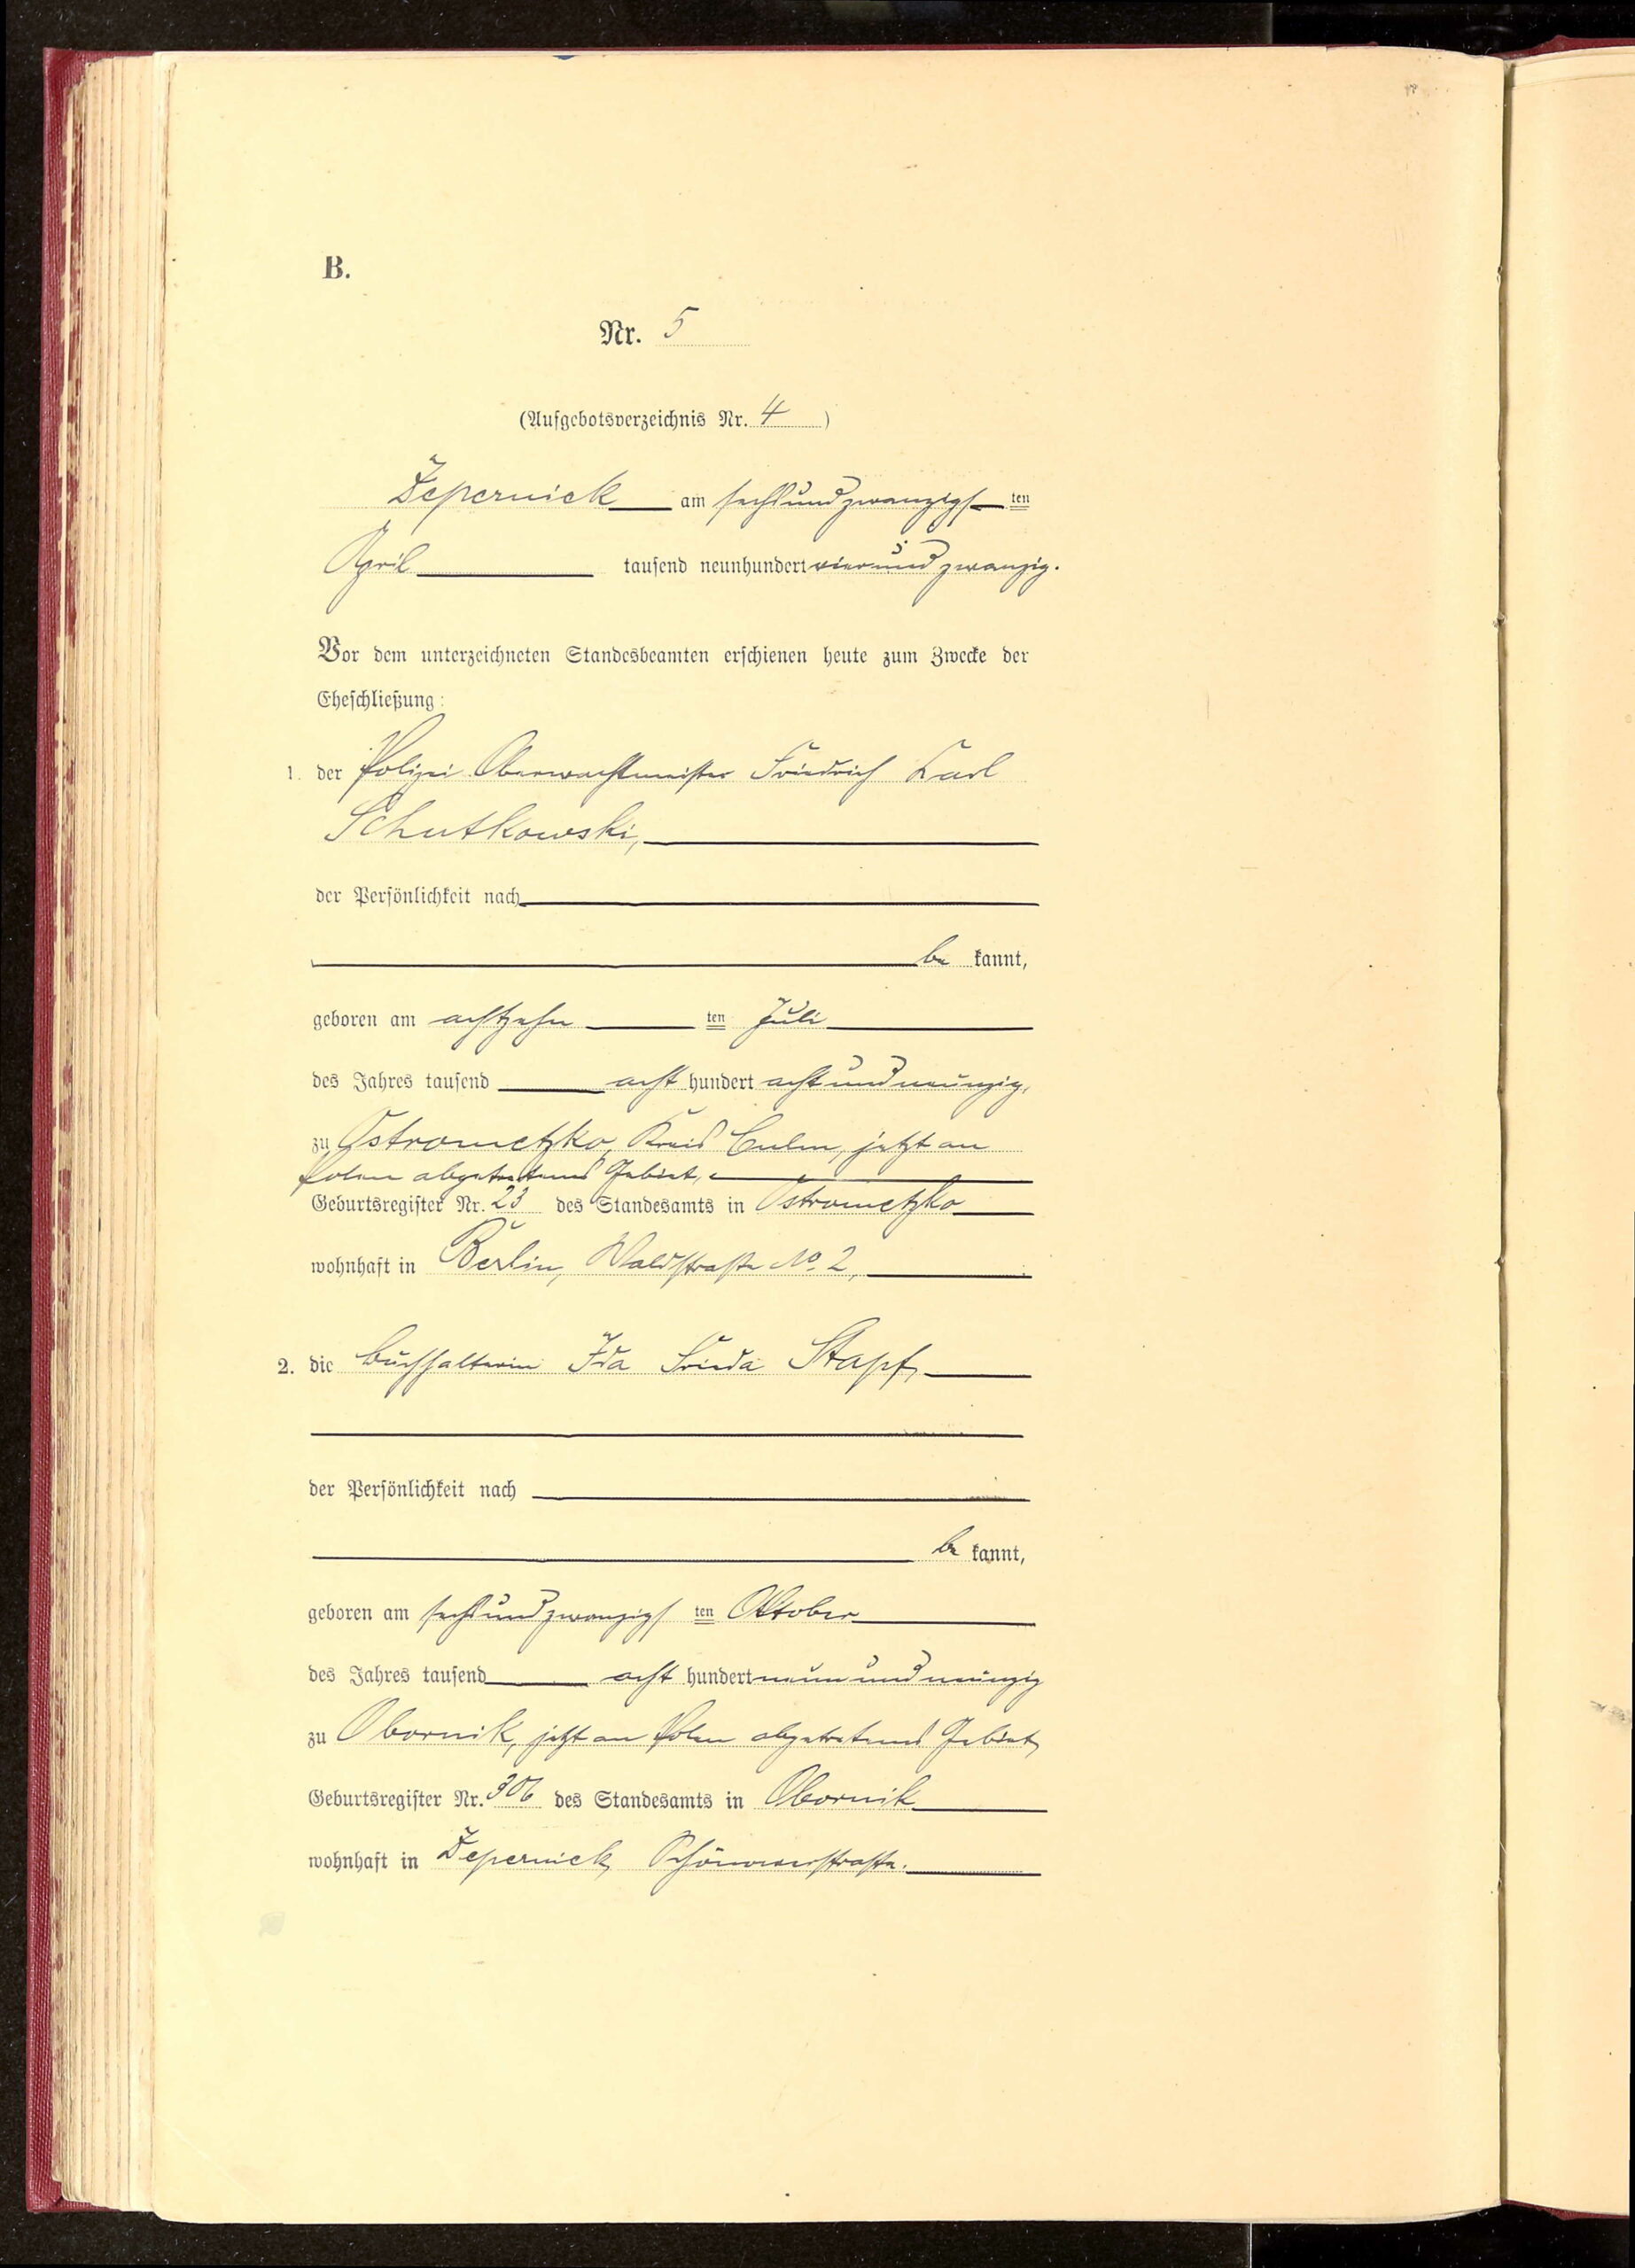 B.
Nr. 5
(Aufgebotsverzeichnis Nr. 4)
Zepernick am sechsundzwanzigsten
April tausend neunhundert vierundzwanzig.
Vor dem unterzeichneten Standesbeamten erschienen heute zum Zwecke der
Eheschließung:
1. der Polizei Oberwachtmeister Friedrich Karl
Schutkowski,
der Persönlichkeit nach
be kannt,
geboren am achtzehn ten Juli
des Jahres tausend acht hundert achtundneunzig,
zu Ostrometzko, Kreis Culm, jetzt an
Polen abgetretenes Gebiet,
Geburtsregister Nr. 23 des Standesamts in Ostrometzko
wohnhaft in Berlin, Waldstraße No. 2,
2. die Buchhalterin Ida Frieda Stapf,
der Persönlichkeit nach
be kannt,
geboren am sechsundzwanzigs ten Oktober
des Jahres tausend acht hundert neunundneunzig
zu Obornik, jetzt an Polen abgetretenes Gebiet,
Geburtsregister Nr. 306 des Standesamts in Obornik
wohnhaft in Zepernick, Schönowerstraße.